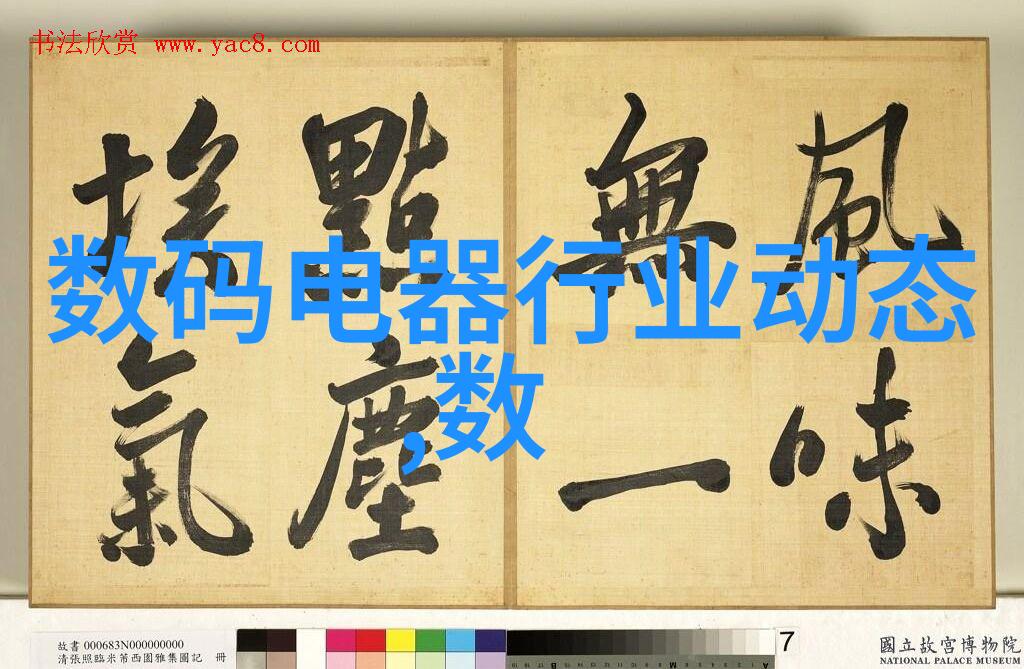 书法欣赏 www.yac8.com
風味
無一
點塵
埃氣
数码电器行业动态
,数
故書 000683N000000000
清張照臨米芾西園雅集圖記 冊
7
國立故宮博物院
NATIONAL PALACE MUSEUM